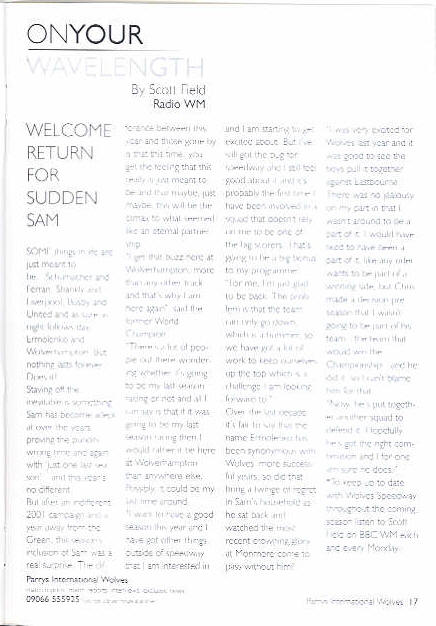 ONYOUR
WAVELENGTH
By Scott Field
Radio WM
WELCOME
RETURN
FOR
SUDDEN
SAM
SOME things in life are
just meant to
be. Schumacher and
Ferrari, Shankly and
Liverpool, Busby and
United and as sure as
night follows day,
Ermolenko and
Wolverhampton. But
nothing lasts forever.
Does it?
Staying off the
inevitable is something
Sam has become adept
at over the years
proving the pundits
wrong time and again
with 'just one last sea
son' and this year's
no different.
But after an indifferent
2001 campaign and a
year away from the
Green, this season's
inclusion of Sam was a
real surprise. The dif-
ference between this
year and those gone by
is that this time, you
get the feeling that this
really is just meant to
be and that maybe, just
maybe, this will be the
climax to what seemed
like an eternal partner
ship.
"I get that buzz here at
Wolverhampton, more
than any other track
and that's why I am
here again" said the
former World
Champion.
"There's a lot of peo-
ple out there wonder-
ing whether it's going
to be my last season
racing or not and all I
can say is that if it was
going to be my last
season racing then I
would rather it be here
at Wolverhampton
than anywhere else.
Possibly it could be my
last time around.
"I want to have a good
season this year and I
have got other things
outside of speedway
that I am interested in
and I am starting to get
excited about. But I've
still got the bug for
speedway and I still feel
good about it and it's
probably the first time I
have been involved in a
squad that doesn't rely
on me to be one of
the big scorers. That's
going to be a big bonus
to my programme.
"For me, I'm just glad
to be back. The prob
lem is that the team
can only go down,
which is a bummer, so
we have got a lot of
work to keep ourselves
up the top which is a
challenge I am looking
forward to."
Over the last decade
it's fair to say that the
name Ermolenko has
been synonymous with
Wolves' more success-
ful years, so did that
bring a twinge of regret
in Sam's household as
he sat back and
watched the most
recent crowning glory
at Monmore come to
pass without him?
"I was very excited for
Wolves last year and it
was good to see the
boys pull it together
against Eastbourne.
There was no jealousy
on my part in that I
wasn't around to be a
part of it. I would have
liked to have been a
part of it, like any rider
wants to be part of a
winning side, but Chris
made a decision pre
season that I wasn't
going to be part of his
team - the team that
would win the
Championship - and he
did it, so I can't blame
him for that.
"Now, he's put togeth-
er another squad to
defend it. Hopefully
he's got the right com-
bination and I for one
am sure he does."
*To keep up to date
with Wolves Speedway
throughout the coming
season listen to Scott
Field on BBC WM each
and every Monday.
Parrys International Wolves
09066 555935
Parrys International Wolves 17